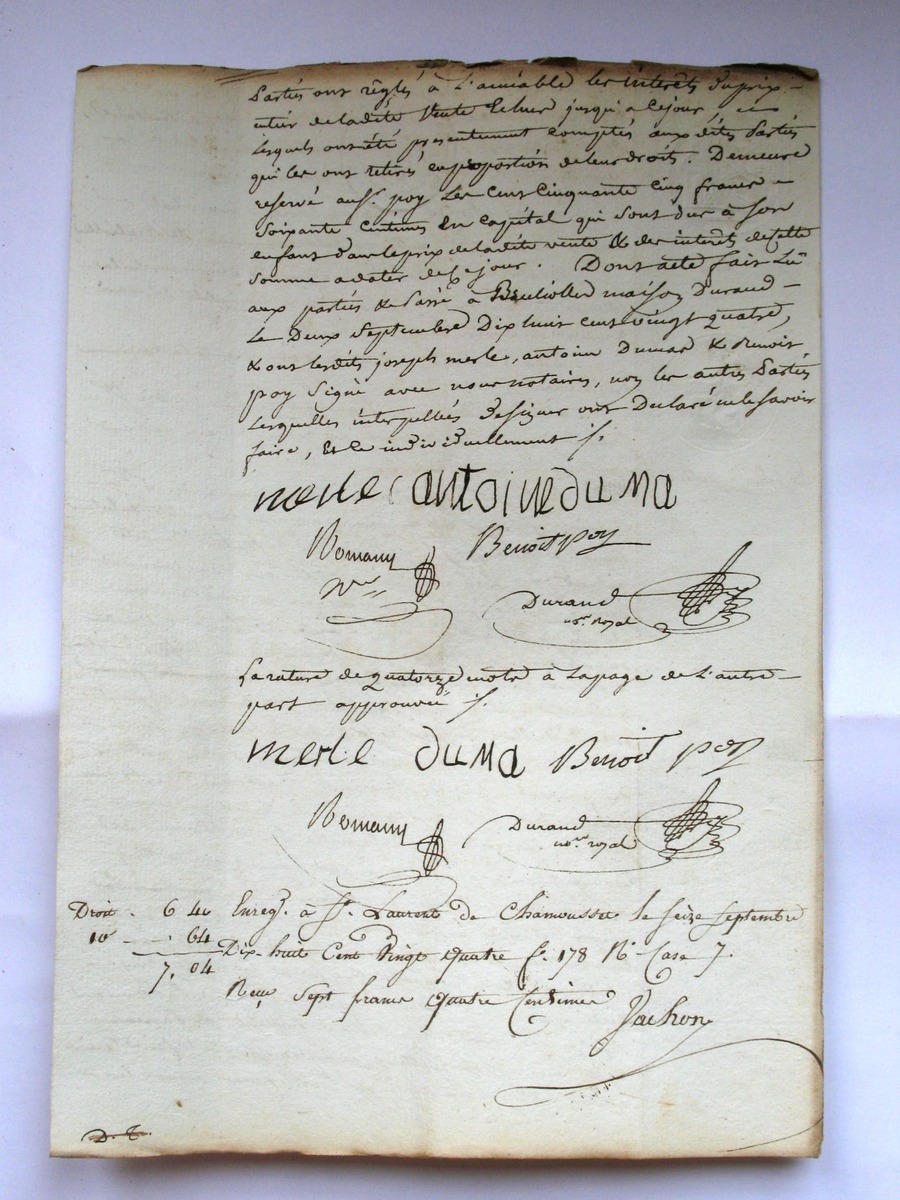 Parties ont réglés à L'amiable les intérêts du prix
entier de ladite Vente Echus jusqu'a ce jour,
lesquels ont été presentement comptés aux dites Parties
qui les ont retirés en proportion de leur droits. Demeure
reservé aud. poy Les Cent Cinquante Cinq francs
Soixante Centimes En Capital qui sont dus à Son
enfant dans le prix de ladite vente & des interêts de Cette
Somme a dater de Ce jour. Dont acte fait Lû
aux parties & Passé à Brulliolles maison Durand
Le Deux Septembre Dix huit cent vingt quatre,
& ont lesdits joseph merle, antoine Dumas & Benoit
poy Signé avec nous notaires, non les autres Parties
Lesquelles interpellées de signer ont Déclaré ne le Savoir
faire, & ce individuellement /.
merle antoine duma
Romany Benoit poy
Nre Durand
nore Royal
La rature de quatorze mots à La page de L'autre
part approuvée /.
merle duma Benoit poy
Romany Durand
nore royal
Droit . 6 40 Enregé. à St. Laurent de Chamousset le Seize Septembre
10e - . 64 Dix-huit Cent Vingt quatre fo. 178 Ro Case 7.
7. 04
Reçu Sept francs quatre Centimes
Jachon
D. T.